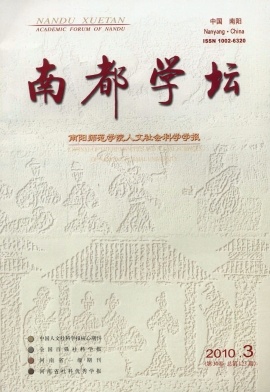 NANDU XUETAN
ACADEMIC FORUM OF NANDU
中国 南阳
Nanyang·China
ISSN 1002-6320
南都学坛
南阳师范学院人文社会科学学报
中国人文社科学报核心期刊
全国百强社科学报
河南省一级期刊
河南省社科优秀学报
2010.3